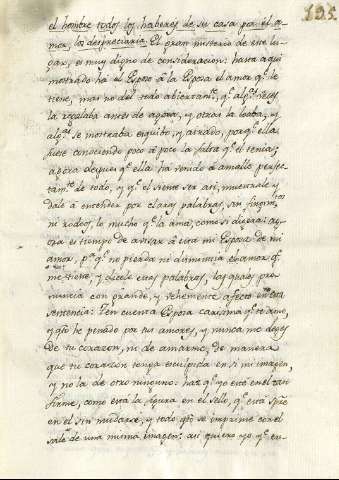 195.
el hombre todos los haberes de su casa por el a-
mor, los despreciaria. El gran misterio de este lu-
gar, es muy digno de consideracion: hasta aqui
mostrado há el Esposo á la Esposa el amor q.e le
tiene, mas no del todo abiertam.te q.e alg.s veces
la regalaba antes de agora, y otras la loaba, y
alg.s se mostraba esquibo, y airado, porq.e ella
fuese conociendo poco á poco la falta q.e él tenia;
agora despues q.e ella ha venido á amalle perfec-
tam.te de todo, y q.e el siente ser asi, muestrale y
dale á entender por claras palabras, sin fingim.tos
ni rodeos, lo mucho q.e la ama, como si dixera: ag-
ora es tiempo de avisar á esta mi Esposa de mi
amor, p.a q.e no pierda ni disminuia el amor q.e
me tiene, y dicele estas palabras, las quales pro-
nuncia con grande, y vehemente afecto en esta
sentencia: Ten cuenta Esposa carisima q.e te amo,
y q.to he penado por tus amores, y nunca me dexes
de tu corazon, ni de amarme, de manera
que tu corazon tenga esculpida en si mi imagen,
y no la de otro ninguno: haz q.e yo esté en el tan
firme, como está la figura en el sello, q.e está sp̃re
en él sin mudarse, y todo q.to se imprime con él
sale de una misma imagen: asi quiero yo q.e en-